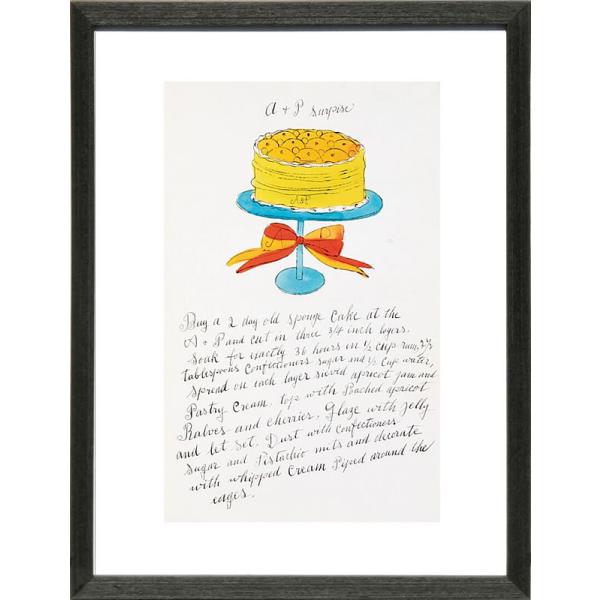 A & P surpise
A&P
A P
Buy a 2 day old sponge cake at the
A & P and cut in three 3/4 inch layers.
Soak for exactly 36 hours in ½ cup rum, 2½
tablespoons confectioners sugar and ½ cup water,
spread on each layer sieved apricot jam and
Pastry cream. Top with Poached apricot
Halves and cherries. Glaze with jelly
and let set. Dust with confectioners
sugar and Pistachio nuts and decorate
with whipped cream Piped around the
edges.